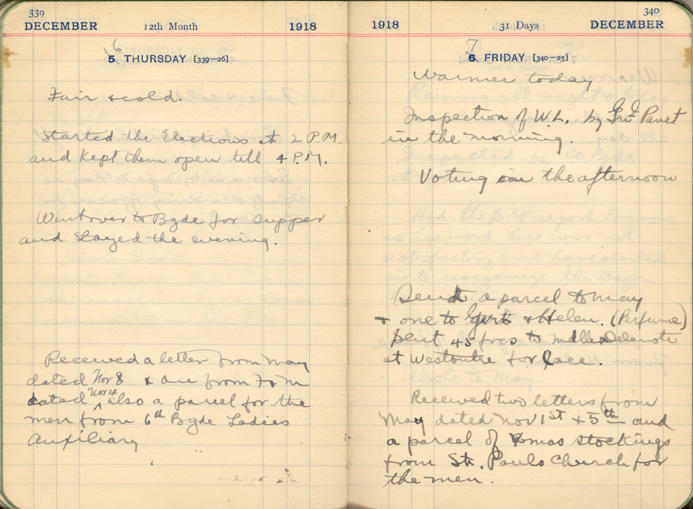 339
DECEMBER 12th Month 1918
6
5 THURSDAY [339-26]
Fair & cold.
Started the Elections at 2 P.M.
and kept them open till 4 P.M.
Went over to Bgde for supper
and stayed the evening.
Received a letter from May
dated Nov 8 & one from F & M
dated Nov 4 also a parcel for the
men from 6th Bgde Ladies
Auxiliary
340
1918 31 Days DECEMBER
7
6 FRIDAY [340-25]
Warmer today
Inspection of W.L. by
in the morning.
Voting in the afternoon
Send a parcel to May
& one to Gert & Helen. (Perfume)
Sent 45 frcs to Mdlle
at Westoutre for lace.
Received two letters from
May dated Nov 1st & 5th and
a parcel of Xmas stockings
from St. Pauls Church for
the men.